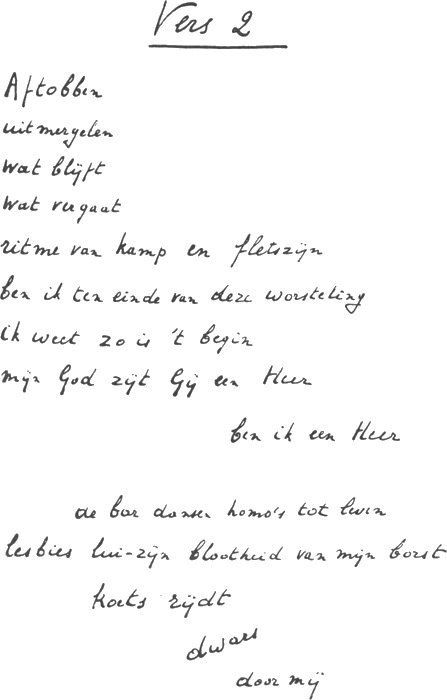 Vers 2
Aftobben
uitmergelen
wat blijft
wat vergaat
ritme van kamp en fletszijn
ben ik ten einde van deze worsteling
ik weet zo is 't begin
mijn God zijt Gij een Heer
ben ik een Heer
de bar dansen homo's tot
lesbies lui-zijn blootheid van mijn borst
koets rijdt
dwars
door mij